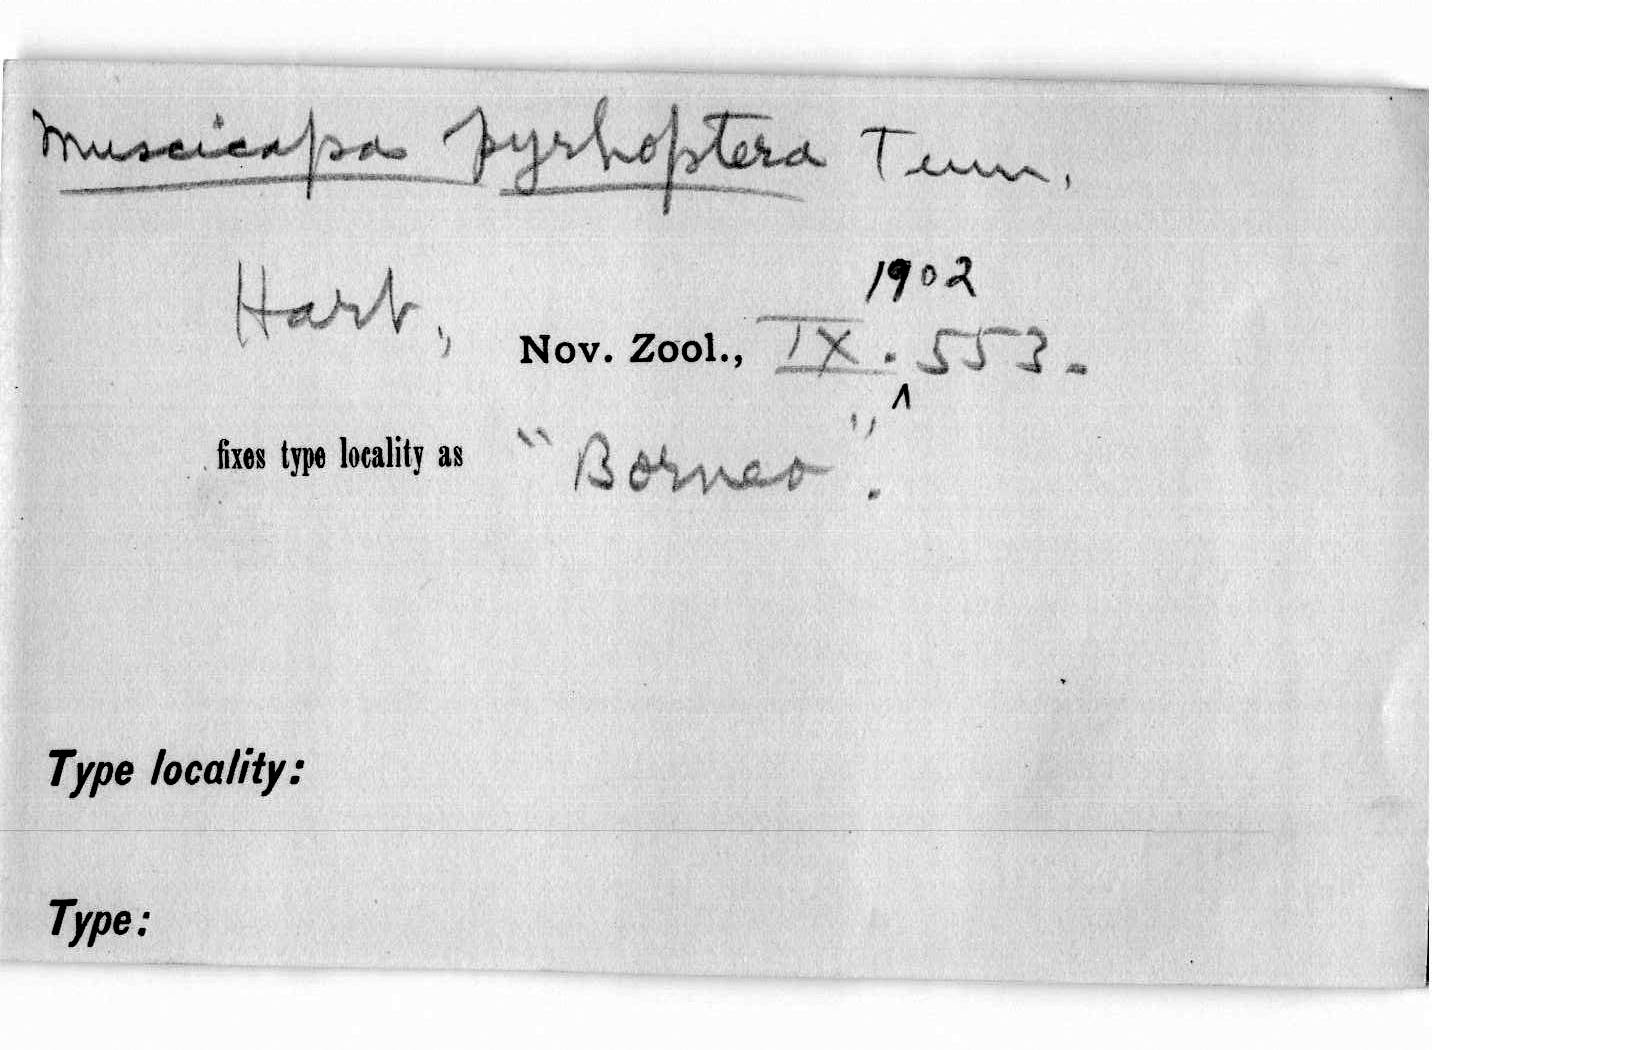 Muscicapa pyrhoptera Temm.
Hart., Nov. Zool., IX. 1902 553.
fixes type locality as "Borneo".
Type locality:
Type: